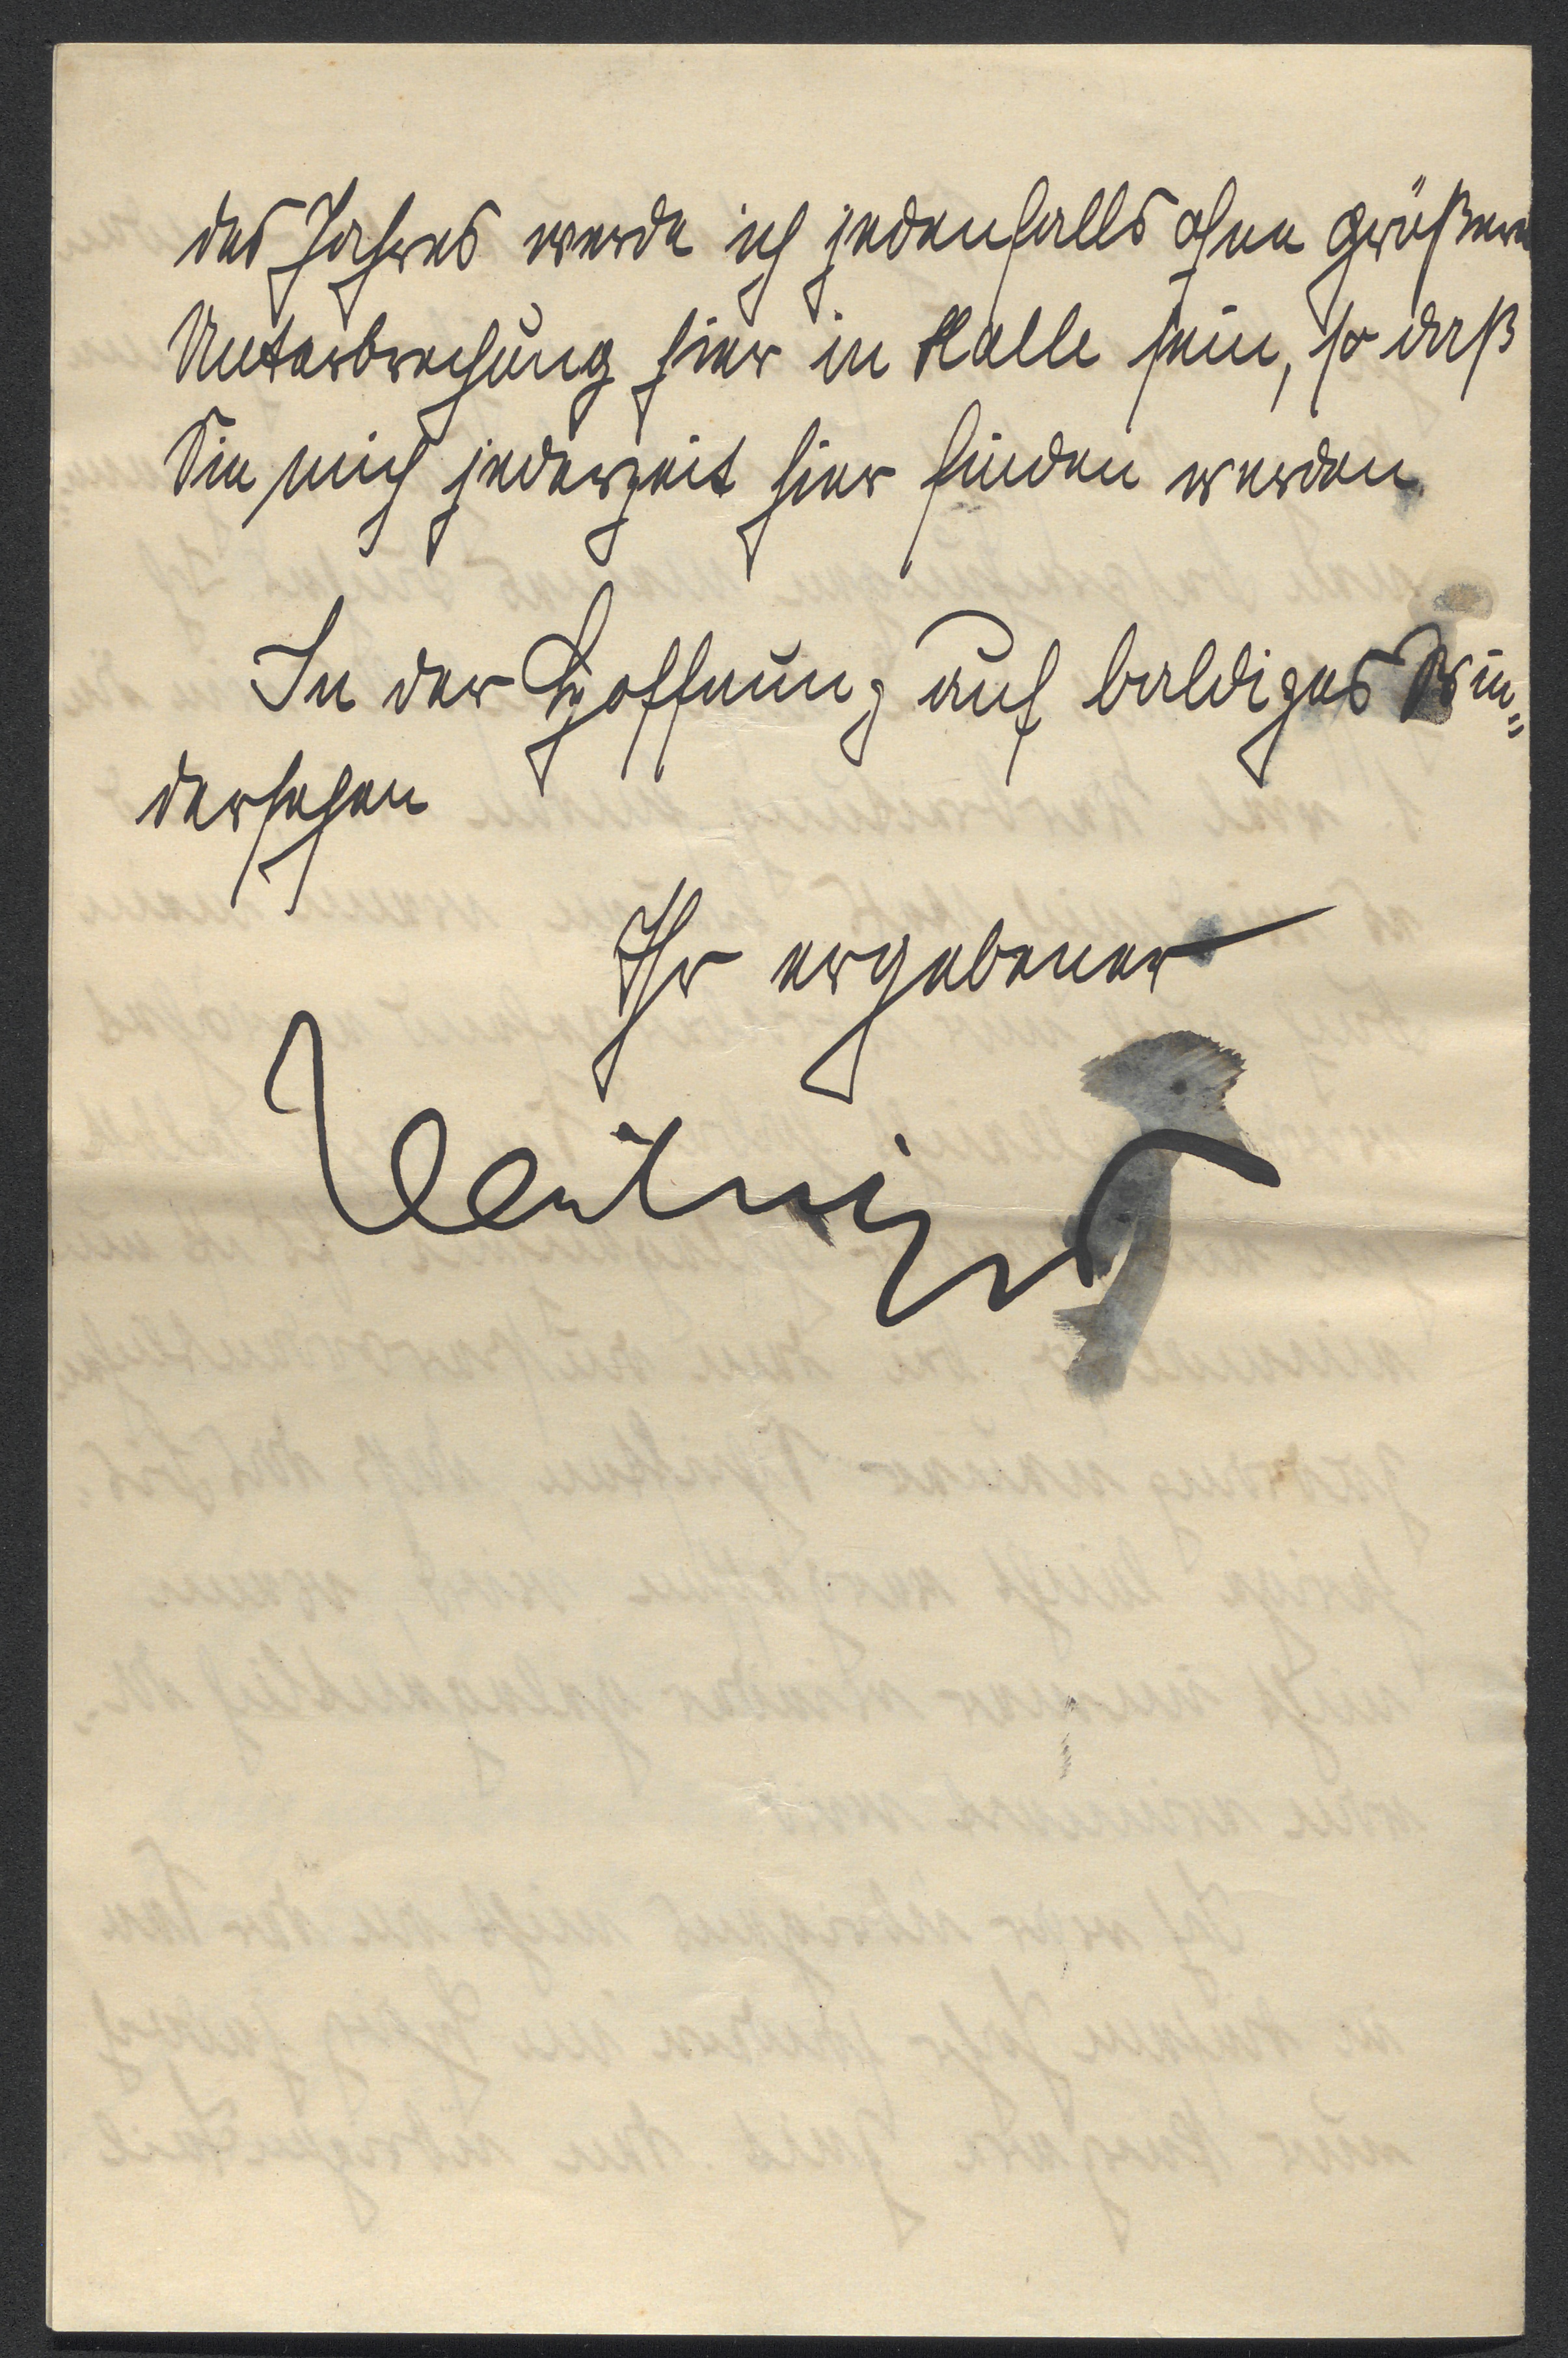 des Jahres werde ich jedenfalls ohne größere
Unterbrechung hier in Halle sein, so daß
Sie mich jederzeit hier finden werden.
In der Hoffnung auf baldiges Wie-
dersehen
Ihr ergebener